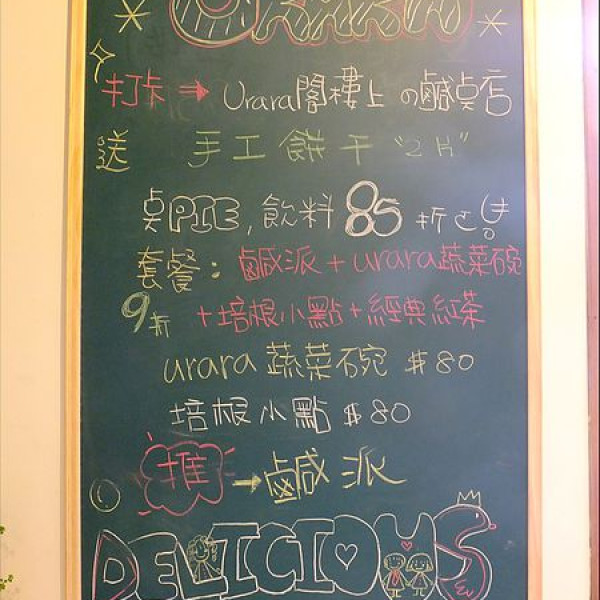 URARA
打卡 → Urara閣樓上の鹹桌店
送 手工餅干 "2片"
桌PIE, 飲料 85 折
套餐: 鹹派 + urara蔬菜碗
9折 + 培根小點 + 經典紅茶
urara 蔬菜碗 $80
培根小點 $80
推 → 鹹派
DELICIOUS